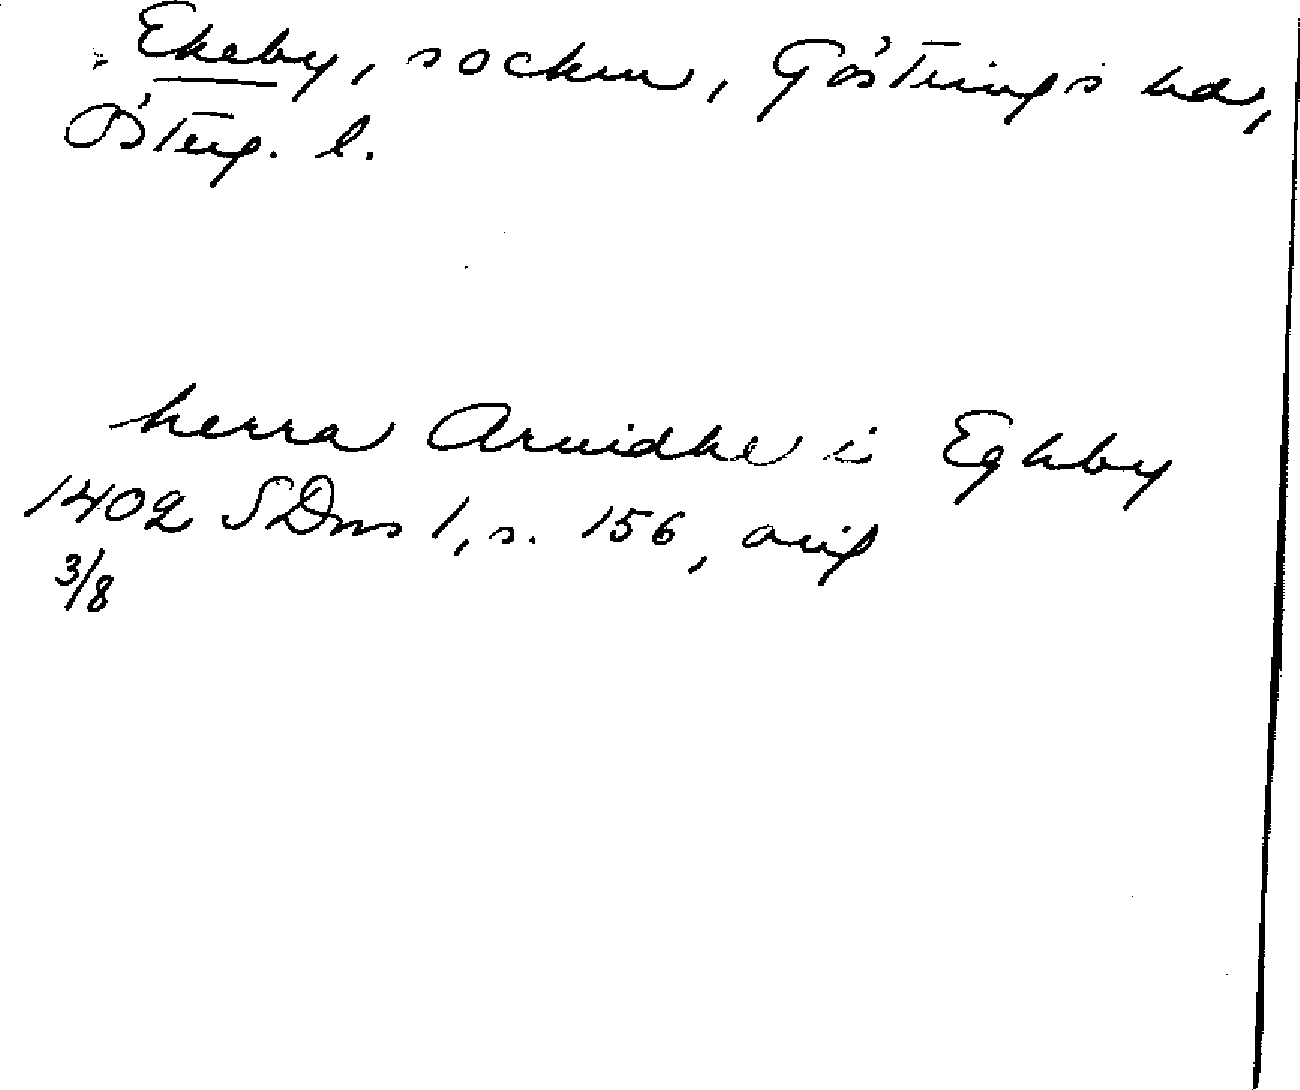 Ekeby, socken, Göstrings hd,
Österg. l.
herra Arvidhe i Eghby
1402 SDns 1, s. 156, orig
3/8